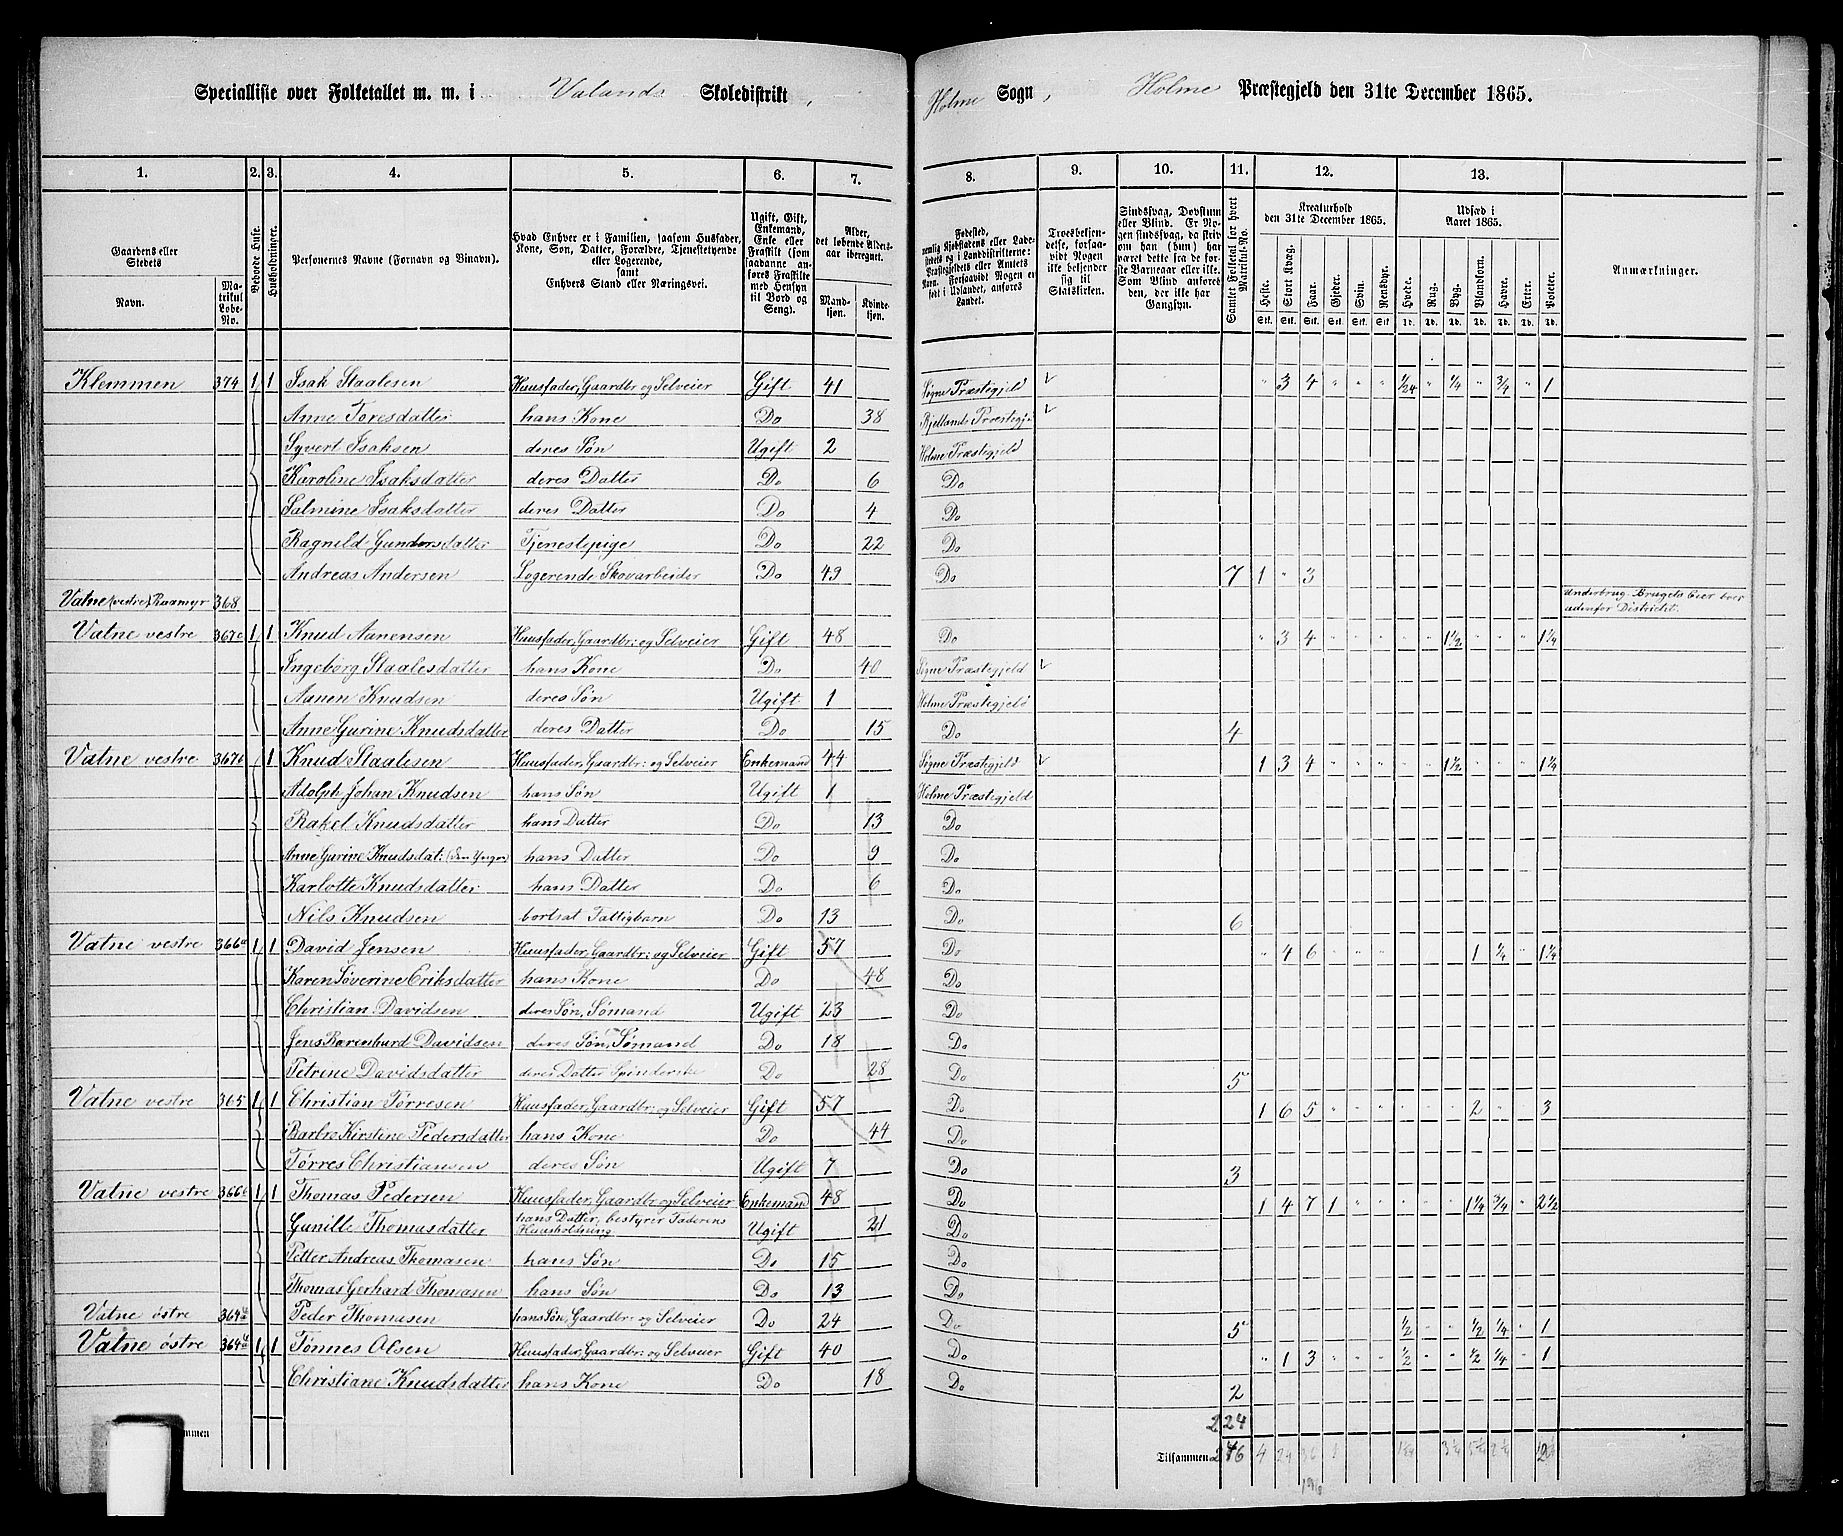 Specialliste over Folketallet m. m. i Valands Skoledistrikt, Holme Sogn, Holme Præstegjeld den 31te December 1865.
1. 2. 3. 4. 5. 6. 7. 8. 9. 10. 11. 12. 13.
Gaardens eller Stedets Navn. Matrikul Løbe-No. Beboede Huse. Husholdninger. Personernes Navne (Fornavn og Tilnavn). Hvad Enhver er i Familien, saasom Husfader, Kone, Søn, Datter, Forældre, Tjenestetyende eller Logerende, samt Enhvers Stand eller Næringsvei. Ugift, Gift, Enkemand, Enke eller Fraskilt (som saadanne anføres Fraskilte med Hensyn til Bord og Seng). Alder, det løbende Aldersaar iberegnet. Mandkjøn. Kvindekjøn.
Fødested, nemlig Kjøbstadens eller Ladestedets og i Landdistrikterne: Præstegjeldets eller Amtets Navn. Forsaavidt Nogen er født i Udlandet, anføres Landet. Troesbekjendelse, forsaavidt Nogen ikke bekjender sig til Statskirken. Sindssvag, Døvstum eller Blind. Er Nogen sindssvag, da skrives om han (hun) har været dette fra de første Barneaar eller ikke. Som Blind anføres den, der ikke har Gangsyn. Samlet Folketal for hvert Matrikul-No. Kreaturhold den 31te December 1865. Heste. Stort Kvæg. Faar. Gjeder. Svin. Rensdyr. Udsæd i Aaret 1865. Hvede. Rug. Byg. Blandkorn. Havre. Erter. Poteter. Anmærkninger.
Stk. Stk. Stk. Stk. Stk. Stk. Td. Td. Td. Td. Td. Td. Td.
Klemmen 374 1 1 Isak Staalesen Huusfader, Gaardbr. og Selveier Gift 41 Søgne Præstegjeld " 3 4 " " " 1/24 " 1/4 " 3/4 " 1
Anne Toresdatter hans Kone Do 38 Bjellands Præstegj.
Syvert Isaksen deres Søn Ugift 2 Holme Præstegjeld
Karoline Isaksdatter deres Datter Do 6 Do
Salmine Isaksdatter deres Datter Do 4 Do
Ragnild Gundersdatter Tjenestepige Do 22 Do
Andreas Andersen Logerende Skovarbeider Do 49 Do 7 1 " 3
Vatne (vestre) Raamyr 368 Underbrug. Brugets Eier boer udenfor Distriktet.
Vatne vestre 367c 1 1 Knud Aanensen Huusfader, Gaardbr: og Selveier Gift 48 Do " 3 4 " " " " " 1 1/2 " " " 1 1/4
Ingeborg Staalesdatter hans Kone Do 40 Søgne Præstegjeld
Aanen Knudsen deres Søn Ugift 1 Holme Præstegjeld
Anne Gurine Knudsdatter deres Datter Do 15 Do 4
Vatne vestre 367b 1 Knud Staalesen Huusfader, Gaardbr: og Selveier Enkemand 44 Søgne Præstegjeld 1 3 4 " " " " " 1 1/2 " " " 1 1/4
Adolph Johan Knudsen hans Søn Ugift 1 Holme Præstegjeld
Rakel Knudsdatter hans Datter Do 13 Do
Anne Gurine Knudsdat: (den Yngre) hans Datter Do 9 Do
Karlotte Knudsdatter hans Datter Do 6 Do
Nils Knudsen bortsat Fattigbarn Do 13 Do 6
Vatne vestre 366a 1 1 David Jensen Huusfader, Gaardbr: og Selveier Gift 57 Do " 4 6 " " " " " " 1 1/4 " 1 1/4
Karen Søverine Eriksdatter hans Kone Do 48 Do
Christian Davidsen deres Søn, Sømand Ugift 23 Do
Jens Ravenburd Davidsen deres Søn, Sømand Do 18 Do
Petrine Davidsdatter deres Datter Spinderske Do 28 Do 5
Vatne vestre 365 1 1 Christian Tørresen Huusfader, Gaardbr: og Selveier Gift 57 Do 1 6 5 " " " " " " 2 " " 3
Barbro Kirstine Pedersdatter hans Kone Do 44 Do
Tørres Christiansen deres Søn Ugift 7 Do 3
Vatne vestre 366b 1 1 Thomas Pedersen Huusfader, Gaardbr: og Selveier Enkemand 48 Do 1 4 7 1 " " " " " 1 1/4 3/4 " 2 1/2
Gunille Thomasdatter hans Datter, bestyrer Faderens Huusholdning Ugift 21 Do
Petter Andreas Thomasen hans Søn Do 15 Do
Thomas Gerhard Thomasen hans Søn Do 13 Do
Vatne østre 364 Peder Thomasen hans Søn, Gaardbr: og Selveier Do 24 Do 5 1/2 " " 1/2 1/4 " 1
Vatne østre 364 1 1 Tønnes Olsen Huusfader, Gaardbr: og Selveier Gift 40 Do " 1 3 " " " 1/2 " " 1/2 1/4 " 1
Christiane Knudsdatter hans Kone Do 18 Do 2
224
Tilsammen 4 24 36 1